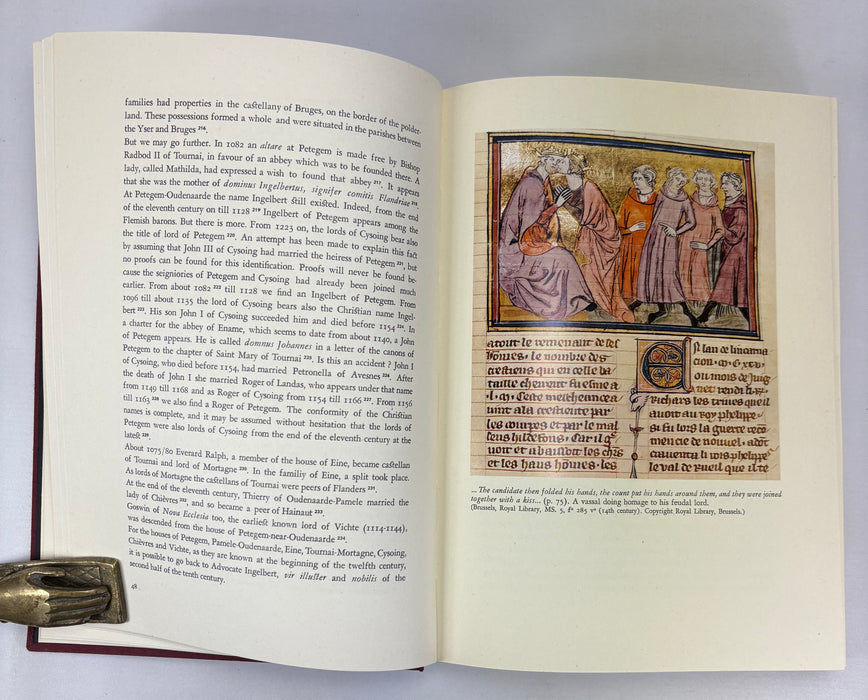 families had properties in the castellany of Bruges, on the border of the polder-
land. These possessions formed a whole and were situated in the parishes between
the Yser and Bruges 216.
But we may go further. In 1082 an altare at Petegem is made free by Bishop
Radbod II of Tournai, in favour of an abbey which was to be founded there. A
lady, called Mathilda, had expressed a wish to found that abbey 217. It appears
that she was the mother of dominus Ingelbertus, signifer comitis Flandriae 218.
At Petegem-Oudenaarde the name Ingelbert still existed. Indeed, from the end
of the eleventh century on till 1128 219 Ingelbert of Petegem appears among the
Flemish barons. But there is more. From 1223 on, the lords of Cysoing bear also
the title of lord of Petegem 220. An attempt has been made to explain this fact
by assuming that John III of Cysoing had married the heiress of Petegem 221, but
no proofs can be found for this identification. Proofs will never be found be-
cause the seigniories of Petegem and Cysoing had already been joined much
earlier. From about 1082 222 till 1128 we find an Ingelbert of Petegem. From
1096 till about 1135 the lord of Cysoing bears also the Christian name Ingel-
bert 223. His son John I of Cysoing succeeded him and died before 1154 224. In
a charter for the abbey of Ename, which seems to date from about 1140, a John
of Petegem appears. He is called domnus Johannes in a letter of the canons of
Petegem to the chapter of Saint Mary of Tournai 225. Is this an accident? John I
of Cysoing, who died before 1154, had married Petronella of Avesnes 226. After
the death of John I she married Roger of Landas, who appears under that name
from 1149 till 1168 and as Roger of Cysoing from 1154 till 1166 227. From 1156
till 1163 228 we also find a Roger of Petegem. The conformity of the Christian
names is complete, and it may be assumed without hesitation that the lords of
Petegem were also lords of Cysoing from the end of the eleventh century at the
latest 229.
About 1075/80 Everard Ralph, a member of the house of Eine, became castellan
of Tournai and lord of Mortagne 230. In the familiy of Eine, a split took place.
As lords of Mortagne the castellans of Tournai were peers of Flanders 231.
At the end of the eleventh century, Thierry of Oudenaarde-Pamele married the
lady of Chièvres 232, and so became a peer of Hainaut 233.
Goswin of Nova Ecclesia too, the earliest known lord of Vichte (1114-1144),
was descended from the house of Petegem-near-Oudenaarde 234.
For the houses of Petegem, Pamele-Oudenaarde, Eine, Tournai-Mortagne, Cysoing,
Chièvres and Vichte, as they are known at the beginning of the twelfth century,
it is possible to go back to Advocate Ingelbert, vir illuster and nobilis of the
second half of the tenth century.
48
atout le remenant de ses
hōmes. le nombre des
crestiens qui en celle ba
taille cheirent fu esme a
uint a la crestiente par
les coupes et par le mal
les hildefons. Car il q̄
uoit et abatoit les chīs
et les haus hōmes. les
El lan de lincarna
ou mois de Juig
Richars les trues que il
auoit au roy phelippe.
si fu lors la guerre recō
mencie de nouuel. adōt
le val de Rueil que il te
... The candidate then folded his hands, the count put his hands around them, and they were joined
together with a kiss... (p. 75). A vassal doing homage to his feudal lord.
(Brussels, Royal Library, MS. 5, f° 285 v° (14th century). Copyright Royal Library, Brussels.)